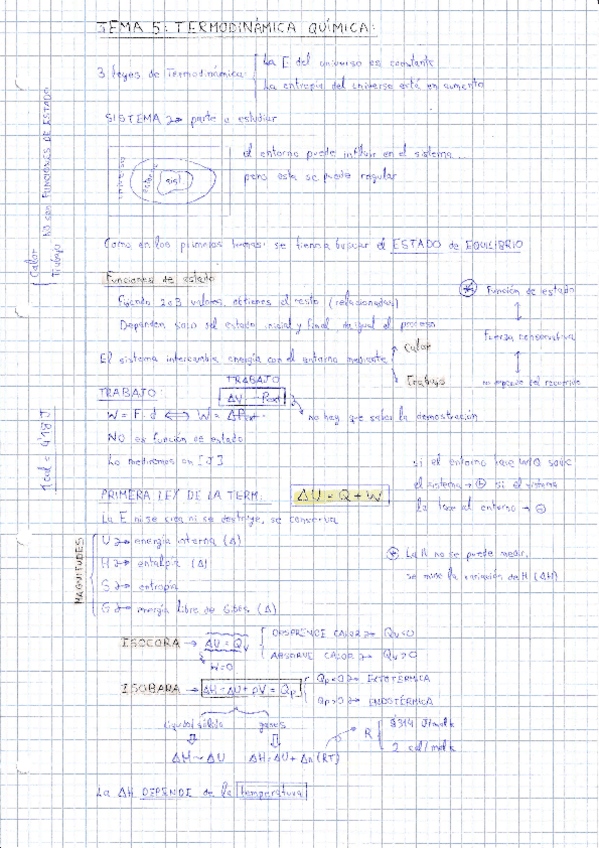 TEMA 5: TERMODINÁMICA QUÍMICA:
3 leyes de Termodinámica:
La E del universo es constante
La entropía del universo está en aumento
SISTEMA → parte a estudiar
universo
sist
el entorno puede influir en el sistema...
pero esta se puede regular
Calor
Trabajo
NO son FUNCIONES DE ESTADO
Como en los primeros temas: se tiende a buscar el ESTADO de EQUILIBRIO
Funciones de estado
2 o 3 valores, obtienes el resto (relacionados)
Dependen solo del estado inicial y final, da igual el proceso
* Función de estado
↕
Fuerza conservativa
↕
no depende del recorrido
El sistema intercambia energía con el entorno mediante
Calor
Trabajo
TRABAJO
TRABAJO:
ΔV · -Pext
W = F · d ⟷ W =
no hay que saber la demostración
NO es función de estado
Lo mediremos en [J]
1 cal = 4'18 J
si el entorno hace W/Q sobre
el sistema → ⊕ si el sistema
lo hace al entorno → ⊖
PRIMERA LEY DE LA TERM:
ΔU = Q + W
La E ni se crea ni se destruye, se conserva
MAGNITUDES
U → energía interna (Δ)
H → entalpía (Δ)
S → entropía
G → energía libre de Gibbs (Δ)
* La H no se puede medir,
se mide la variación de H (ΔH)
ISOCORA → ΔU = Qv
W=0
DESPRENDE CALOR → Qv<0
ABSORVE CALOR → Qv>0
ISOBARA → ΔH = ΔU + pV = Qp
Qp<0 → EXOTÉRMICA
Qp>0 → ENDOTÉRMICA
líquido/sólido
gases
ΔH ~ ΔU
ΔH = ΔU + Δn (RT)
R
8'314 J/mol k
2 cal/mol k
La ΔH DEPENDE de la temperatura